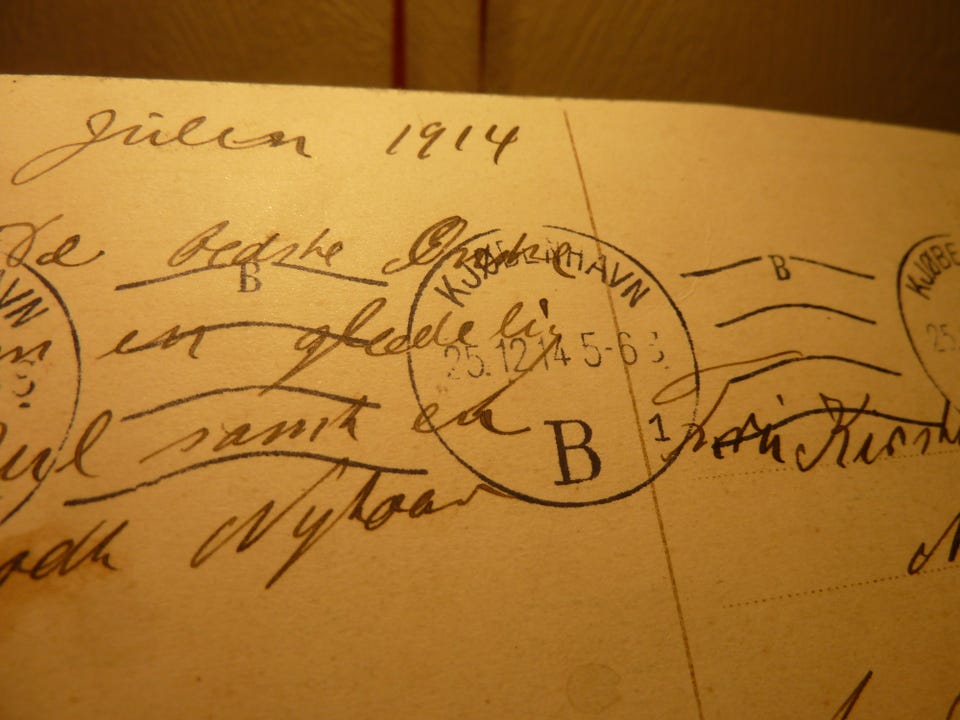 Julen 1914
De bedste Ønsker
en glædelig
Jul samt en
godt Nytaar
KJØBENHAVN
25.12.14 5-6
B
1
B
B
KJØBE
25.
AVN